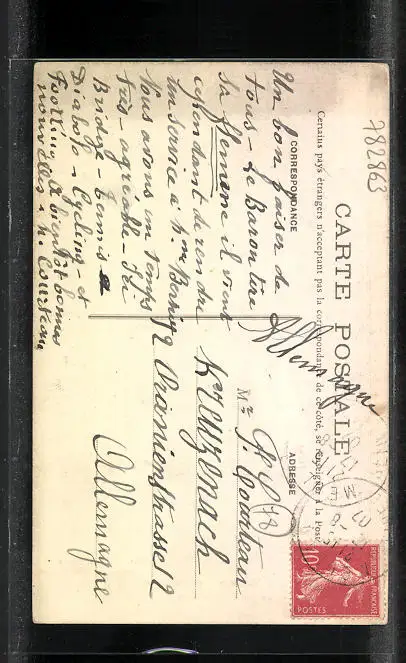 782863
CARTE POSTALE
Certains pays étrangers n'acceptant pas la correspondance de ce côté, se renseigner à la Poste
CORRESPONDANCE
ADRESSE
Un bon baiser de
tous - Le Baron tire
sa flemme il vient
cependant de rendre
un service à Mme
Nous avons un temps
très-agréable - Thé
Bridge - Tennis
Diabolo - Cycling - et
Footing à bientôt bonnes
nouvelles
Allemagne
Mr P. Courteau
Kreuzenach
Oranienstrasse 12
Allemagne
REPUBLIQUE FRANÇAISE
10
POSTES